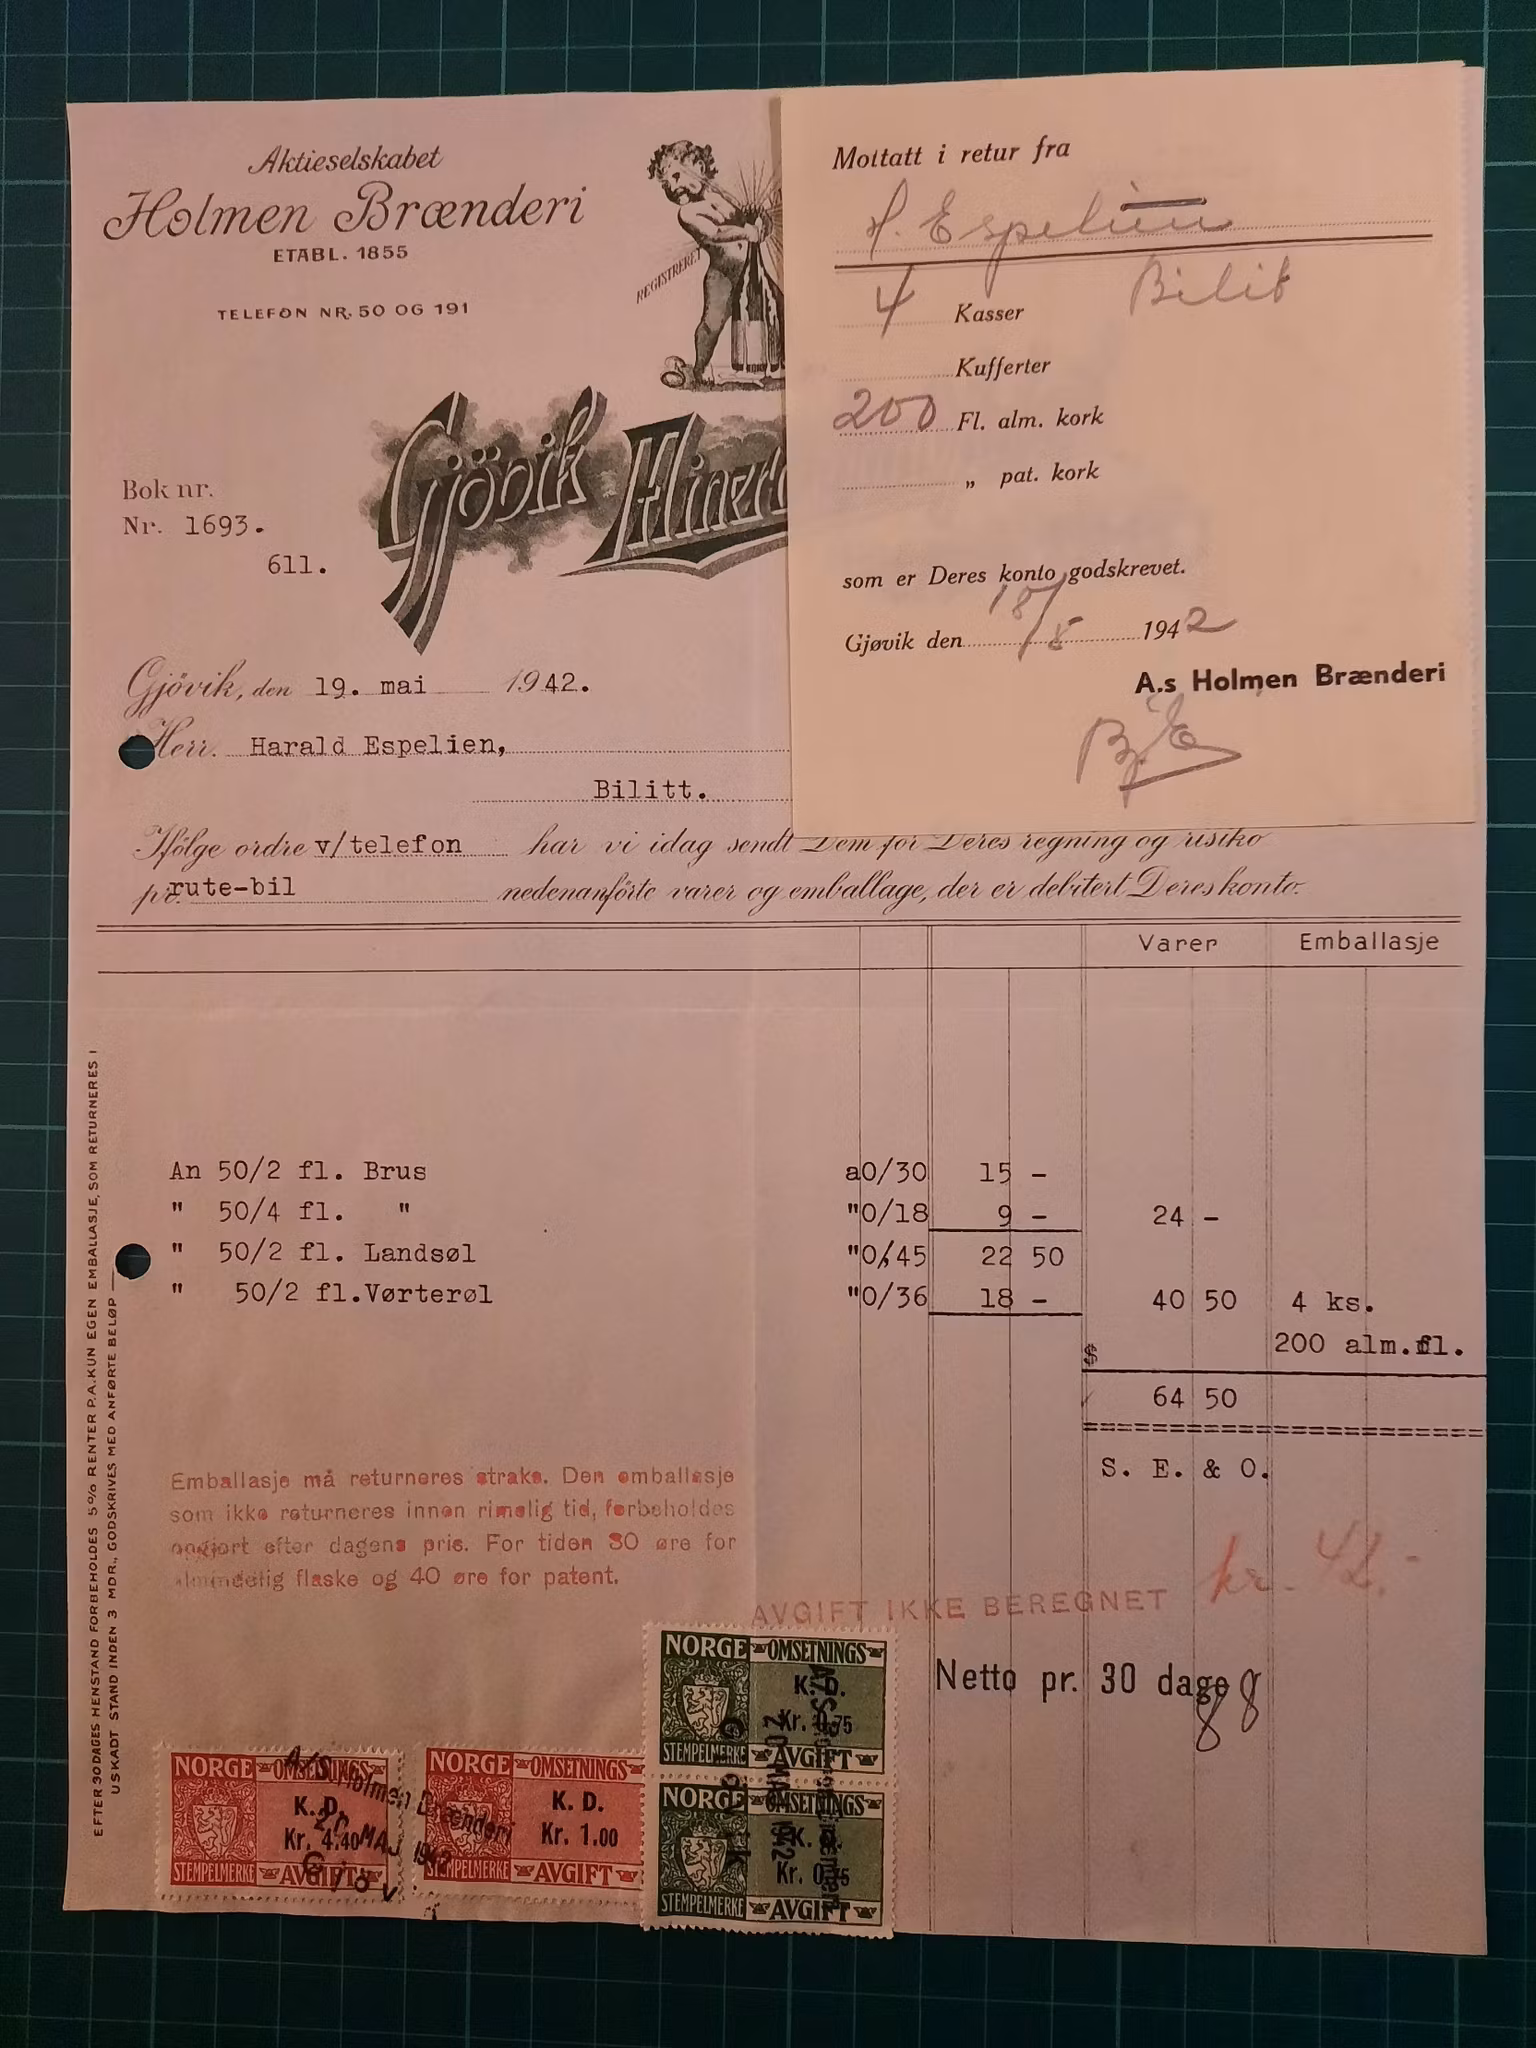 Aktieselskabet
Holmen Brænderi
ETABL. 1855
TELEFON NR. 50 OG 191
REGISTRERET
Gjövik
Bok nr.
Nr. 1693.
611.
Gjövik, den 19. mai 1942.
Herr. Harald Espelien,
Bilitt.
Ifölge ordre v/telefon har vi idag sendt Dem for Deres regning og risiko
pr. rute-bil nedenanförte varer og emballage, der er debitert Deres konto.
Mottatt i retur fra
H. Espelien
Bilit
4 Kasser
Kufferter
200 Fl. alm. kork
„ pat. kork
som er Deres konto godskrevet.
Gjøvik den 18/5 1942
A.s Holmen Brænderi
Varer Emballasje
An 50/2 fl. Brus a0/30 15 -
" 50/4 fl. " "0/18 9 - 24 -
" 50/2 fl. Landsøl "0/45 22 50
" 50/2 fl. Vørterøl "0/36 18 - 40 50 4 ks.
200 alm. fl.
64 50
S. E. & O.
Emballasje må returneres straks. Den emballasje
som ikke returneres innen rimelig tid, forbeholdes
oppgjort efter dagens pris. For tiden 30 øre for
almindelig flaske og 40 øre for patent.
AVGIFT IKKE BEREGNET kr. 42.-
Netto pr. 30 dage
88
EFTER 30 DAGES HENSTAND FORBEHOLDES 5% RENTER P.A. KUN EGEN EMBALLASJE, SOM RETURNERES I
USKADT STAND INDEN 3 MDR., GODSKRIVES MED ANFØRTE BELØP
NORGE OMSETNINGS
K. D.
Kr. 0.75
STEMPELMERKE AVGIFT
NORGE OMSETNINGS
K. D.
Kr. 0.75
STEMPELMERKE AVGIFT
NORGE OMSETNINGS
K. D.
Kr. 4.40
STEMPELMERKE AVGIFT
NORGE OMSETNINGS
K. D.
Kr. 1.00
STEMPELMERKE AVGIFT
A/S Holmen Brænderi
20 MAJ 1942